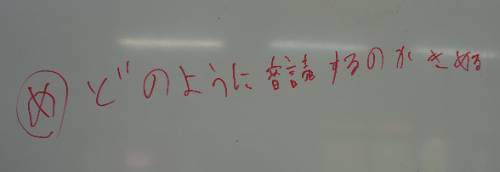 め どのように音読するのかきめる